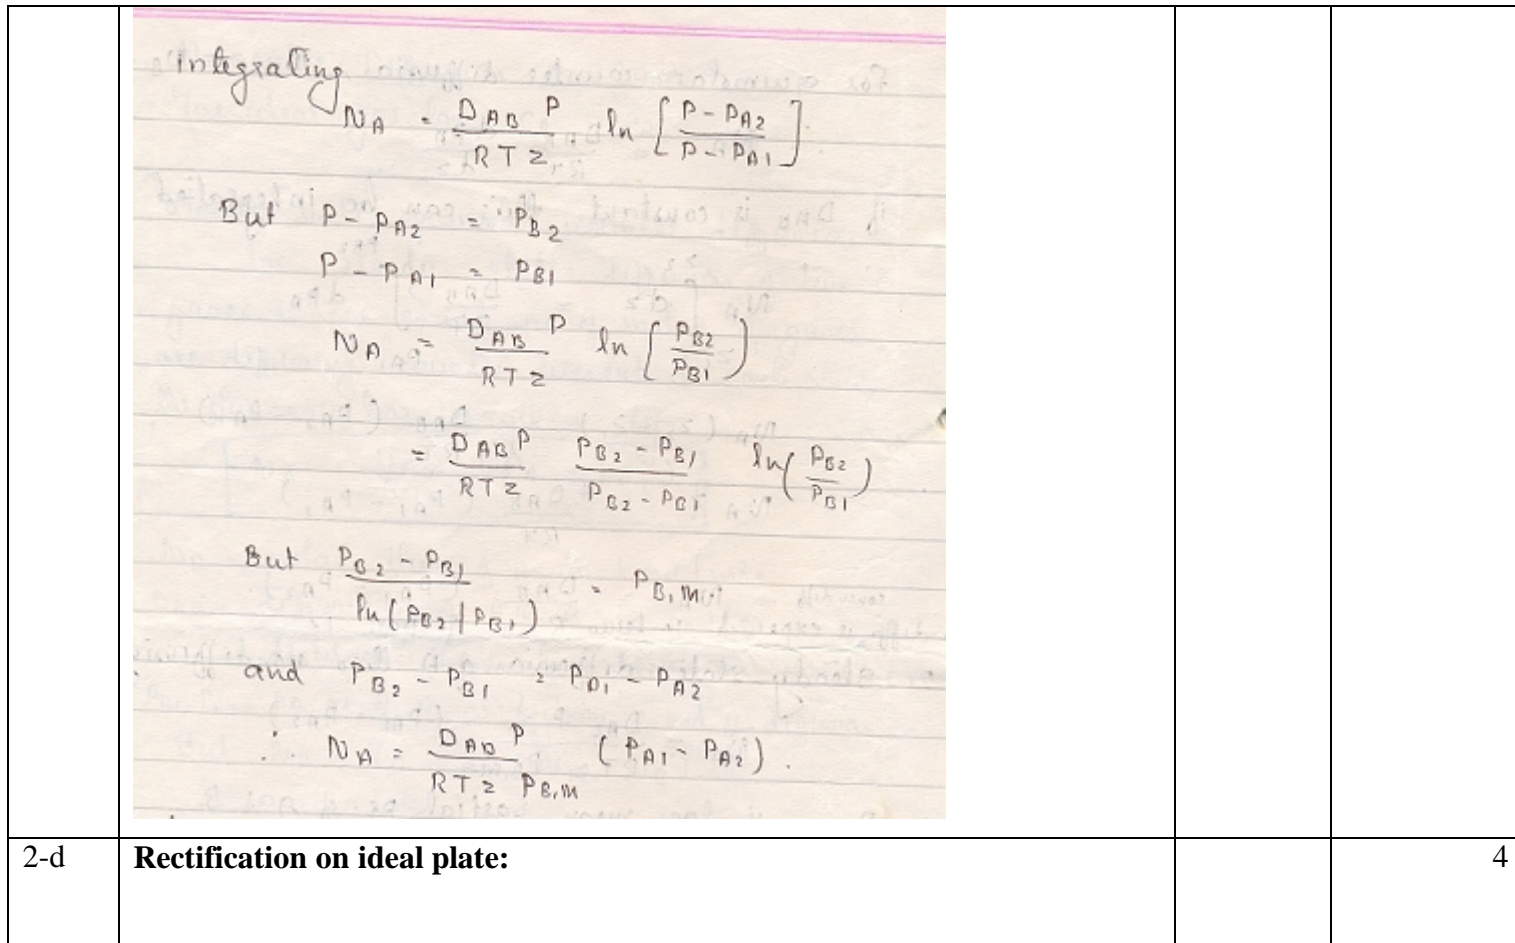 Integrating
N_A = D_AB P / RTz ln [P - P_A2 / P - P_A1]
But P - P_A2 = P_B2
P - P_A1 = P_B1
N_A = D_AB P / RTz ln (P_B2 / P_B1)
= D_AB P / RTz P_B2 - P_B1 / P_B2 - P_B1 ln (P_B2 / P_B1)
But P_B2 - P_B1 / ln (P_B2 | P_B1) = P_B,M
and P_B2 - P_B1 = P_A1 - P_A2
∴ N_A = D_AB P / RTz P_B,M (P_A1 - P_A2).
2-d Rectification on ideal plate: 4